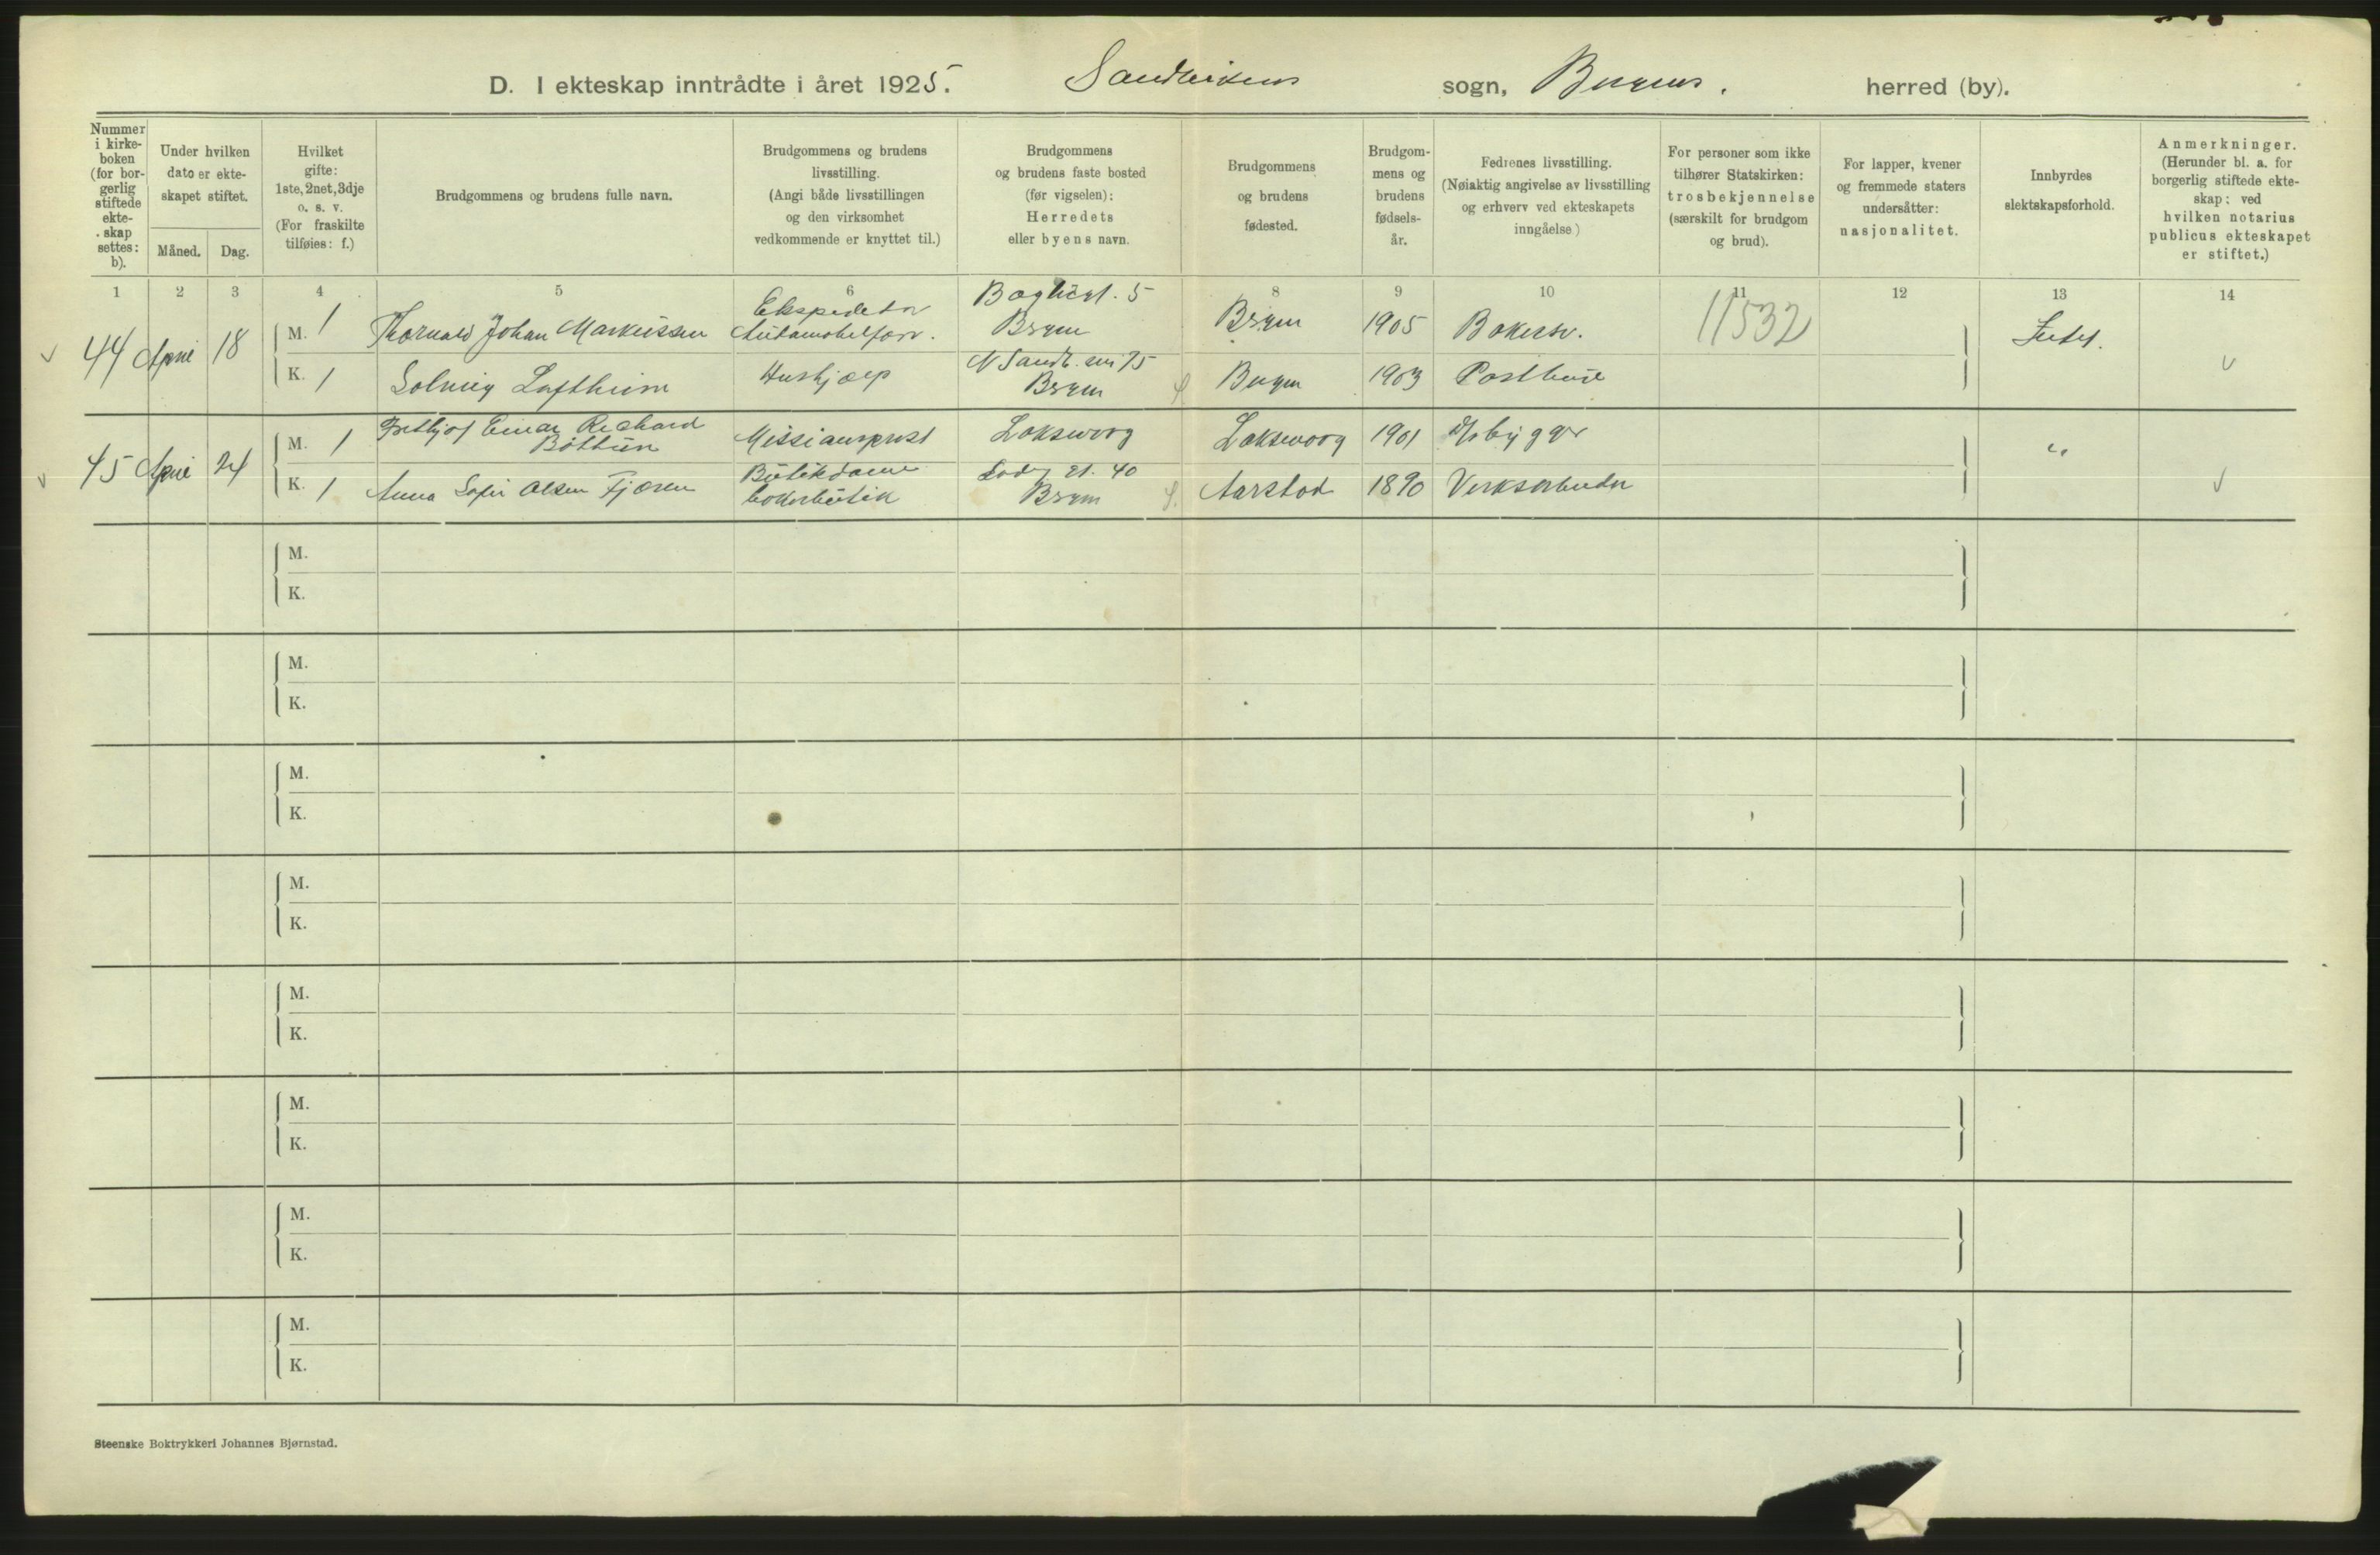 D. I ekteskap inntrådte i året 1925. Sandvikens sogn, Bergens. herred (by).
Nummer i kirkeboken (for borgerlig stiftede ekteskap settes: b).
Under hvilken dato er ekteskapet stiftet.
Måned. Dag.
Hvilket gifte: 1ste, 2net, 3dje o. s. v. (For fraskilte tilføies: f.)
Brudgommens og brudens fulle navn.
Brudgommens og brudens livsstilling. (Angi både livsstillingen og den virksomhet vedkommende er knyttet til.)
Brudgommens og brudens faste bosted (før vigselen): Herredets eller byens navn.
Brudgommens og brudens fødested.
Brudgommens og brudens fødselsår.
Fedrenes livsstilling. (Nøiaktig angivelse av livsstilling og erhverv ved ekteskapets inngåelse)
For personer som ikke tilhører Statskirken: trosbekjennelse (særskilt for brudgom og brud).
For lapper, kvener og fremmede staters undersåtter: nasjonalitet.
Innbyrdes slektskapsforhold.
Anmerkninger. (Herunder bl. a. for borgerlig stiftede ekteskap: ved hvilken notarius publicus ekteskapet er stiftet.)
1 2 3 4 5 6 8 9 10 11 12 13 14
44 April 18 M. 1 Thorvald Johan Markussen Ekspeditør Automobilforr. 5 Bergen Bergen 1905 Bakersv. 11532 Intet.
K. 1 Solveig Loftheim Hushjælp N Sandv. 75 Bergen Bergen 1903 Postbud
45 April 24 M. 1 Fridtjof Einar Richard Bøthun Missionsprest Loksevaag Loksevaag 1901 "
K. 1 Anna Sofie Olsen Fjæren Butikdame bokerbutik 40 Bergen Aarstad 1890 Verksarbeider
M.
K.
M.
K.
M.
K.
M.
K.
M.
K.
M.
K.
M.
K.
M.
K.
Steenske Boktrykkeri Johannes Bjørnstad.